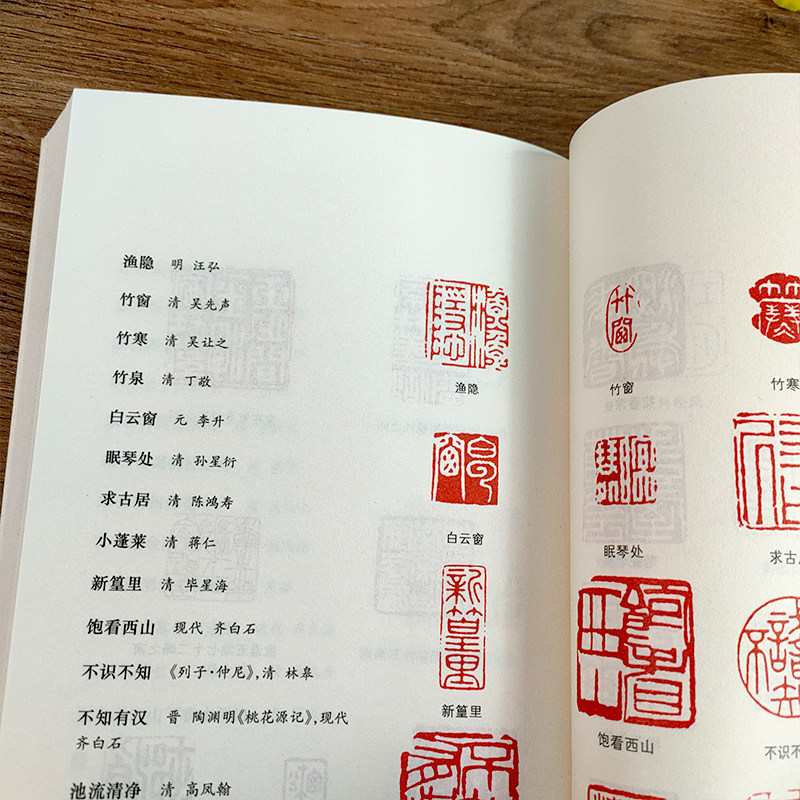 渔隐 明 汪弘
竹窗 清 吴先声
竹寒 清 吴让之
竹泉 清 丁敬
白云窗 元 李升
眠琴处 清 孙星衍
求古居 清 陈鸿寿
小蓬莱 清 蒋仁
新篁里 清 毕星海
饱看西山 现代 齐白石
不识不知 《列子·仲尼》,清 林皋
不知有汉 晋 陶渊明《桃花源记》,现代
齐白石
池流清净 清 高凤翰
渔隐
白云窗
新篁里
新篁里
竹窗
竹寒
眠琴处
求古居
饱看西山
不识不